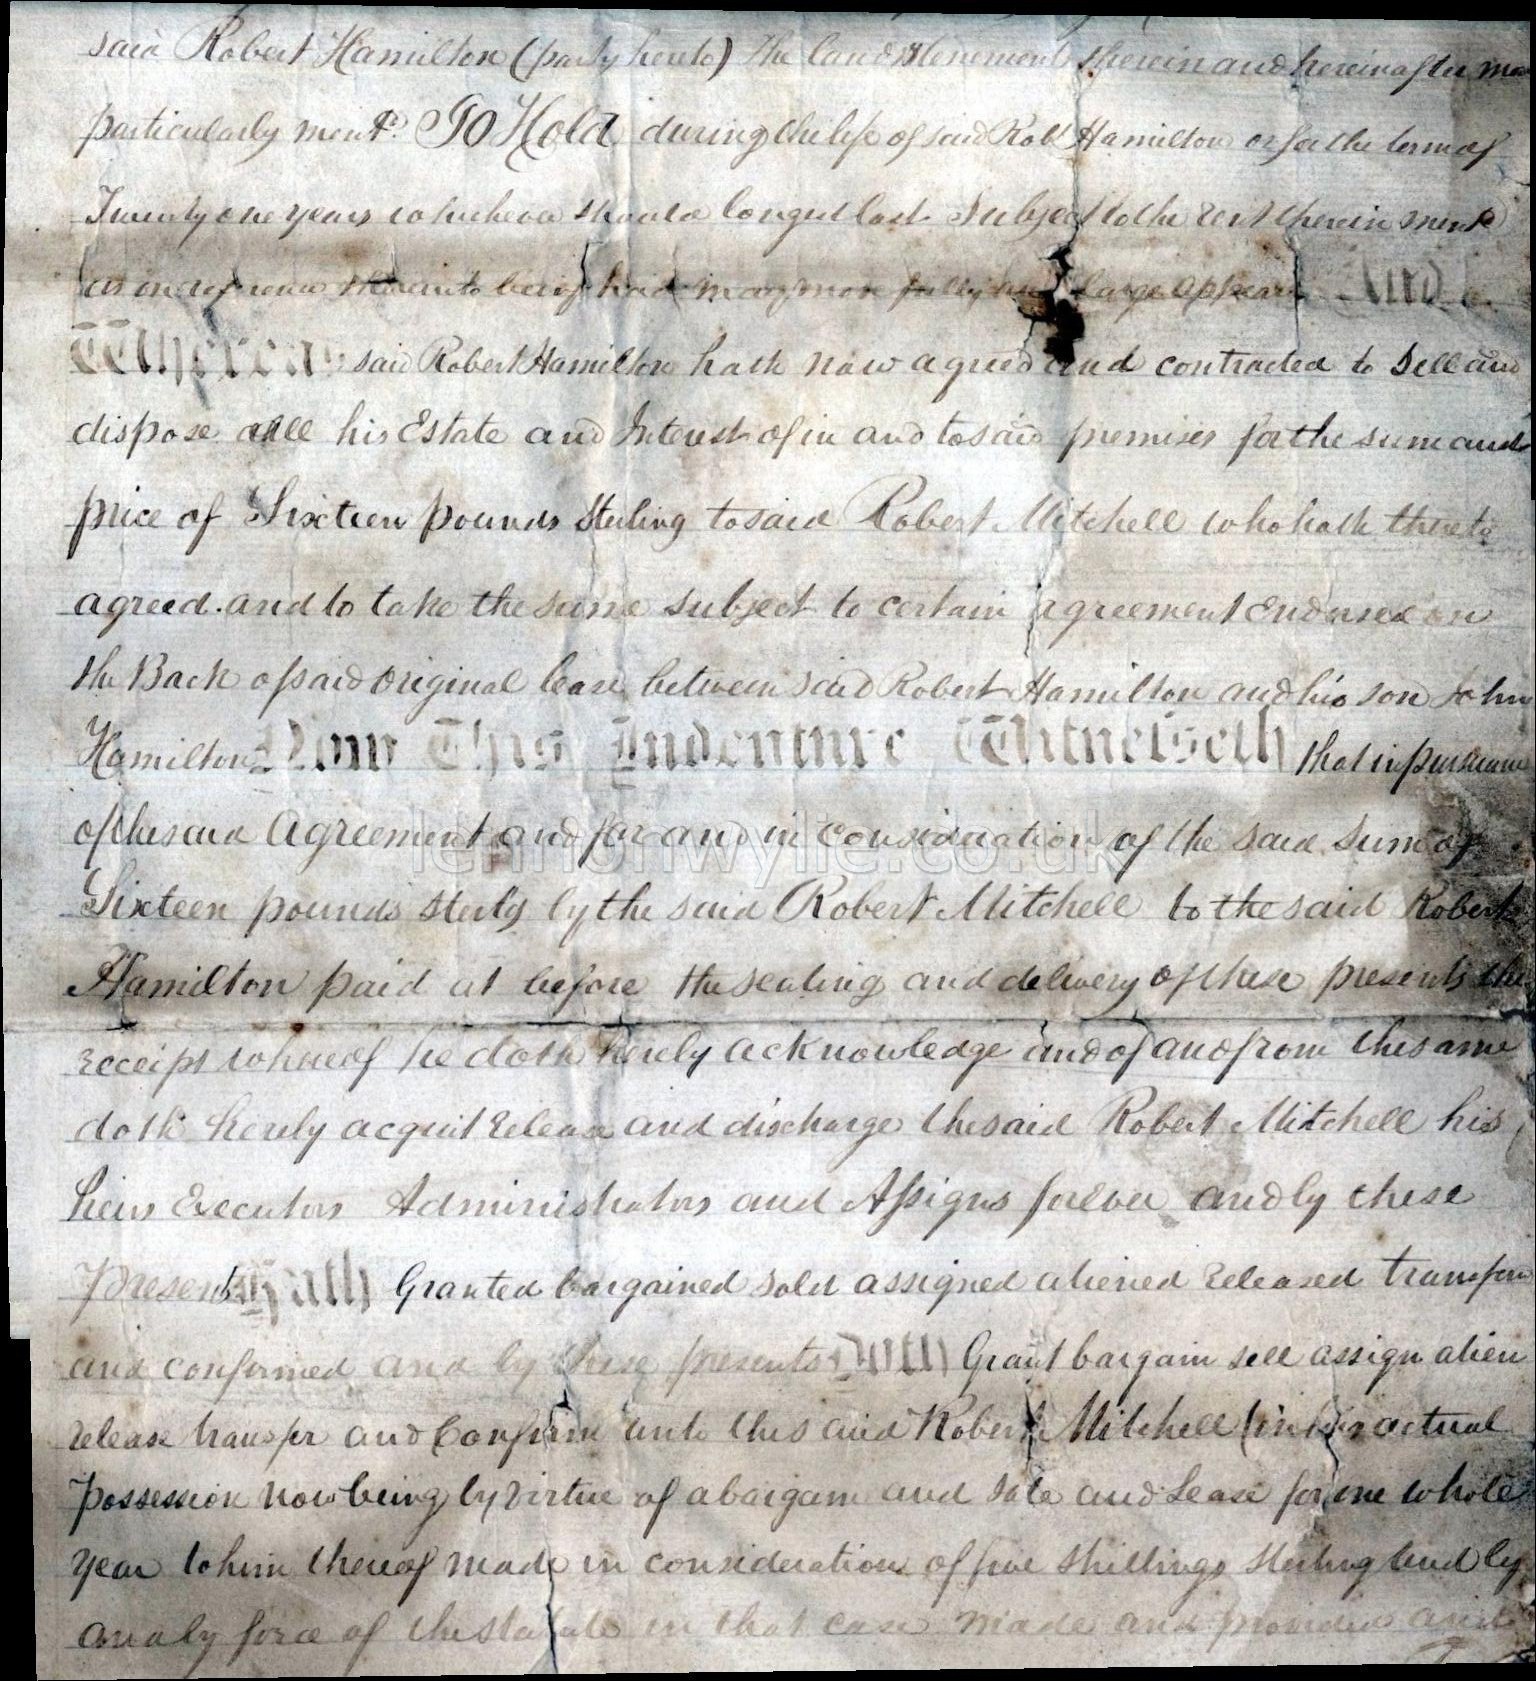 said Robert Hamilton (party hereto) the land & tenement therein and hereinafter
particularly ment.d TO Hold during the life of said Rob.t Hamilton or for the term of
Twenty one years whichever should longest last Subject to the rent therein ment.d
as reference thereunto being had may more fully and large appear And
Whereas said Robert Hamilton hath now agreed and contracted to Sell and
dispose all his Estate and Interest of in and to said premises for the sum and
price of Sixteen pounds Sterling to said Robert Mitchell who hath thereto
agreed. and to take the same subject to certain agreement Endorsed on
the Back of said Original lease between said Robert Hamilton and his son John
Hamilton Now This Indenture Witnesseth that in pursuance
of the said Agreement and for and in consideration of the said Sum of
Sixteen pounds Sterlg by the said Robert Mitchell to the said Robert
Hamilton paid at before the sealing and delivery of these presents the
receipt whereof he doth hereby acknowledge and of and from the same
doth hereby acquit release and discharge the said Robert Mitchell his
heirs Executors Administrators and Assigns forever and by these
presents Hath Granted bargained sold assigned aliened released
and confirmed and by these presents Doth Grant bargain sell assign alien
release transfer and Confirm unto the said Robert Mitchell (in his actual
Possession now being by Virtue of a bargain and Sale and Lease for one whole
year to him thereof made in consideration of five Shillings Sterling and by
and by force of the statute in that case made and provided
lennonwylie.co.uk